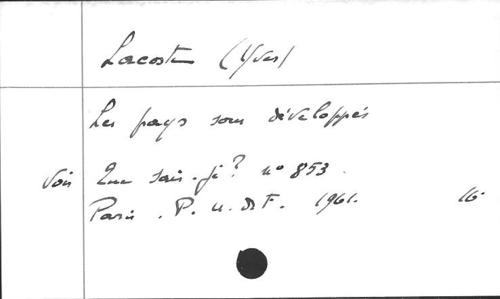 Lacoste (Yves)
Les pays sous développés
voir Que sais-je? n° 853.
Paris. P. U. D F. 1961. 16